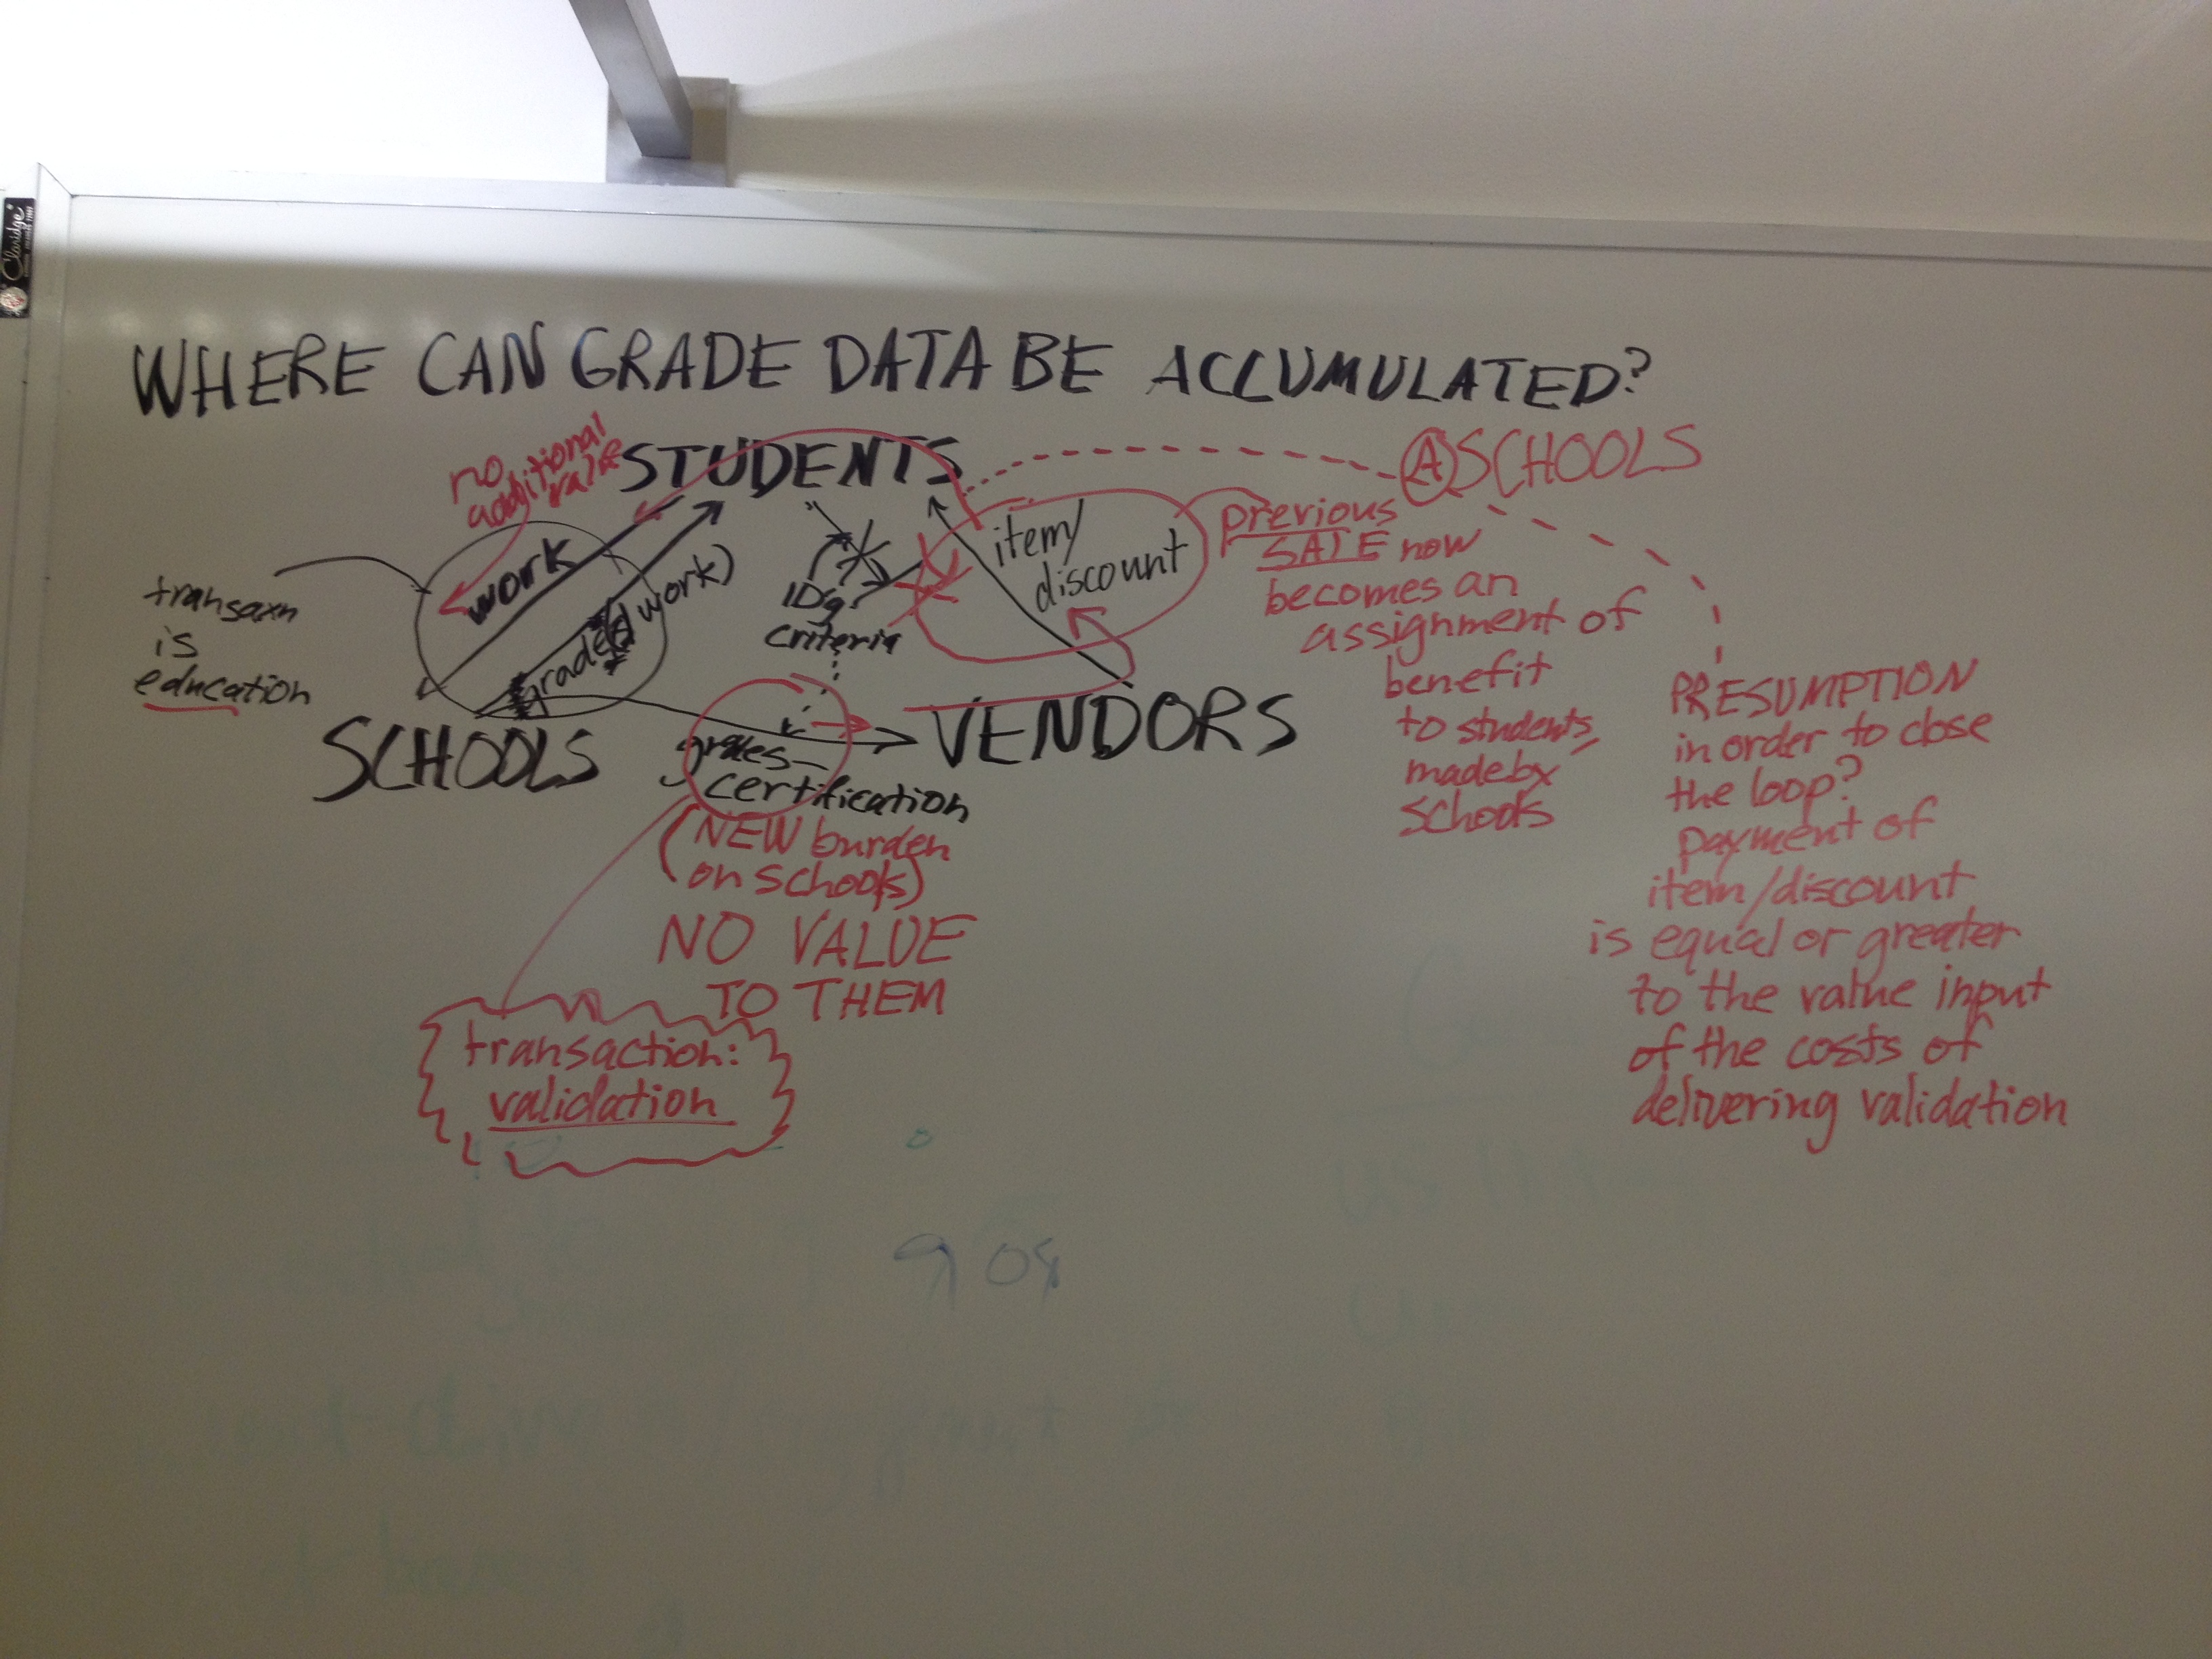 Claridge
WHERE CAN GRADE DATA BE ACCUMULATED?
no
additional
value
STUDENTS
Ⓐ SCHOOLS
work
grade(d work)
transaxn
is
education
IDg
criteria
item/
discount
previous
SALE now
becomes an
assignment of
benefit
to students,
made by
schools
SCHOOLS
VENDORS
grades—
certification
(NEW burden
on schools)
NO VALUE
TO THEM
transaction:
validation
PRESUMPTION
in order to close
the loop?
payment of
item/discount
is equal or greater
to the value input
of the costs of
delivering validation